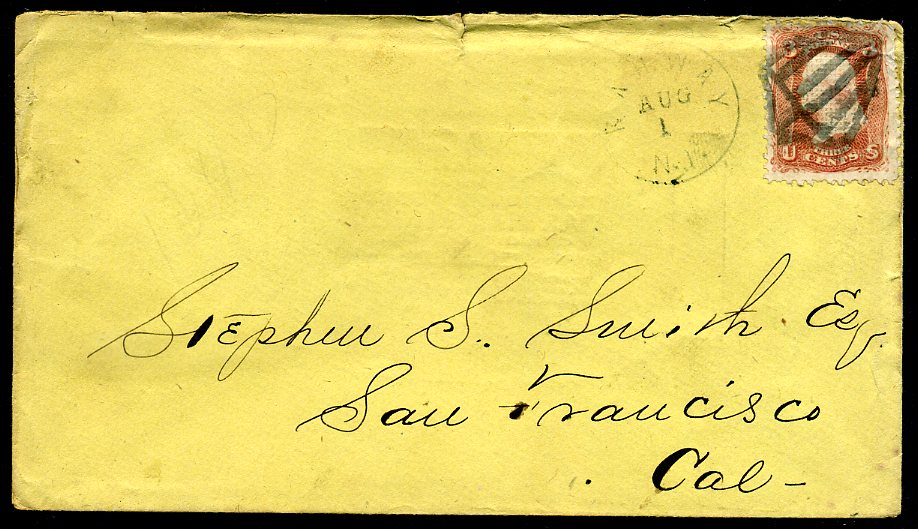 RAHWAY
AUG
1
N.J.
U S
THREE
CENTS
Stephen S. Smith Esq.
San Francisco
Cal-